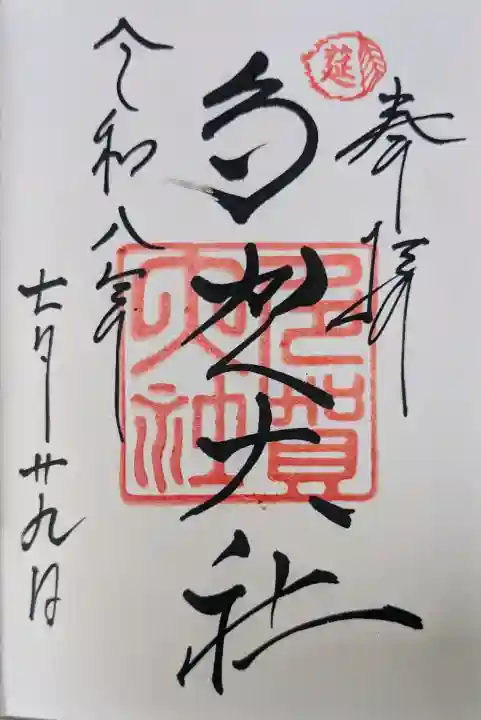 莚
奉拝
多賀大社
多賀大社
令和八年
七月廿九日